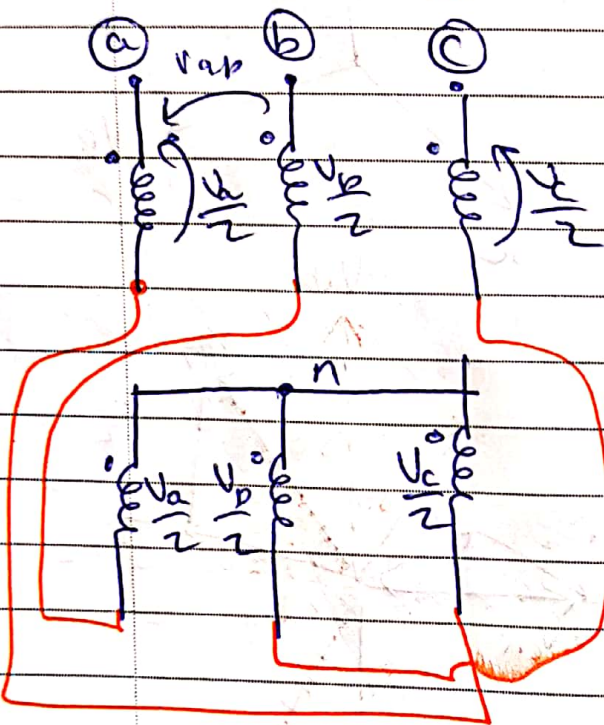 a b c
Vab
Va/2 Vb/2 Vc/2
n
Va/2 Vb/2 Vc/2